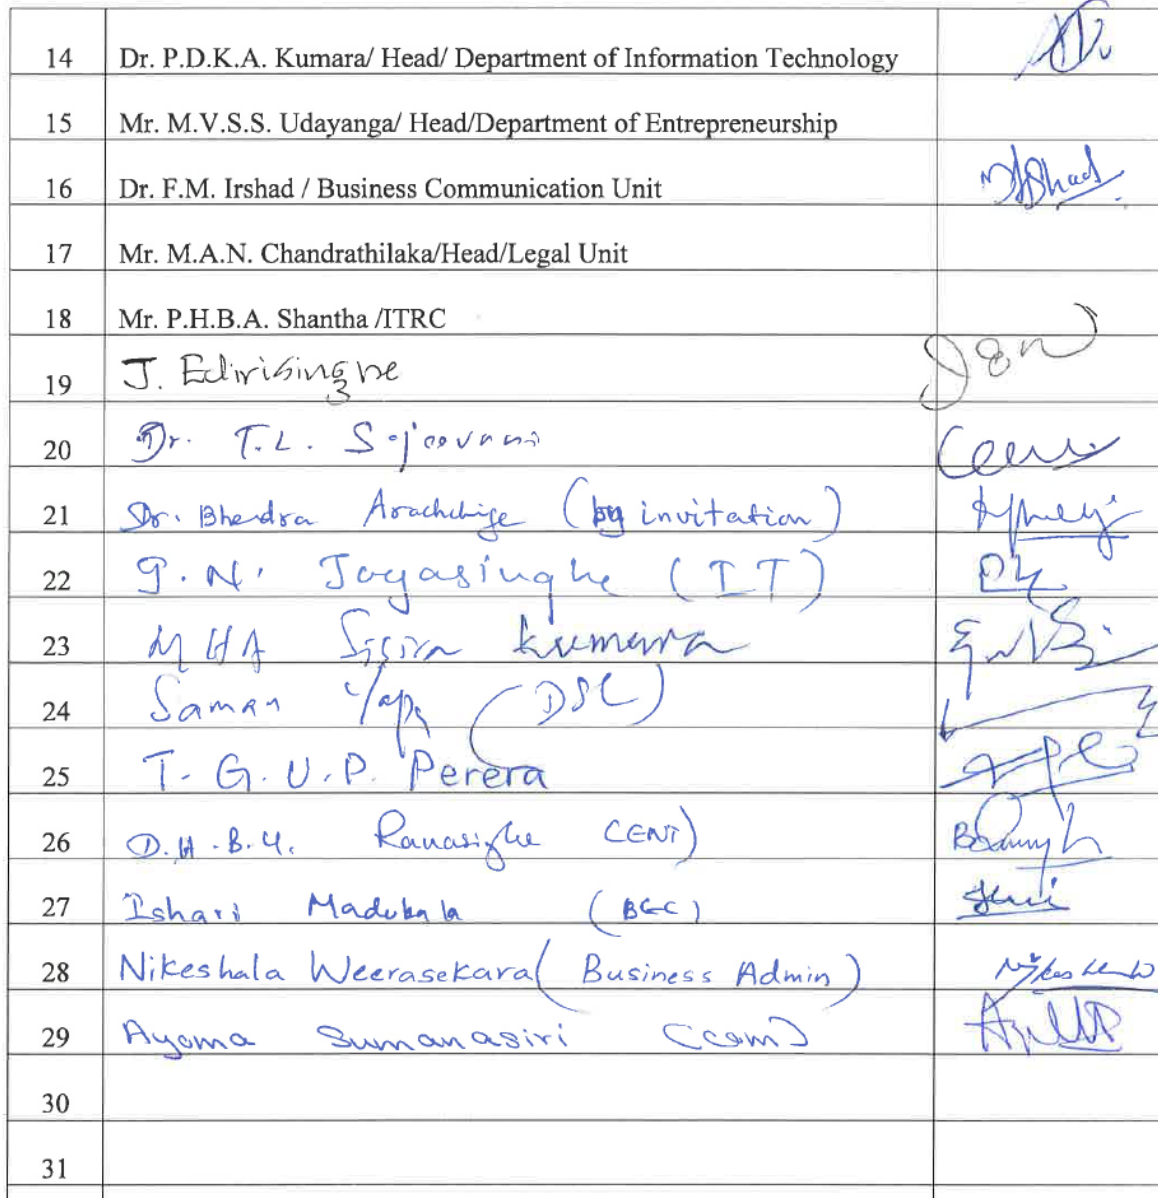 14 Dr. P.D.K.A. Kumara/ Head/ Department of Information Technology
15 Mr. M.V.S.S. Udayanga/ Head/Department of Entrepreneurship
16 Dr. F.M. Irshad / Business Communication Unit
17 Mr. M.A.N. Chandrathilaka/Head/Legal Unit
18 Mr. P.H.B.A. Shantha /ITRC
19 J. Edirisinghe
20 Dr. T.L.
21 Dr. Bhadra Arachchige (by invitation)
22 G.N. Jayasinghe (IT)
23 M H A Sisira Kumara
24 Saman Yapa (DSC)
25 T. G. U. P. Perera
26 D.H.B.Y. Ranasinghe (ENT)
27 Ishari Madubala
28 Nikeshala Weerasekara (Business Admin)
29 Ayoma Sumanasiri (com)
30
31